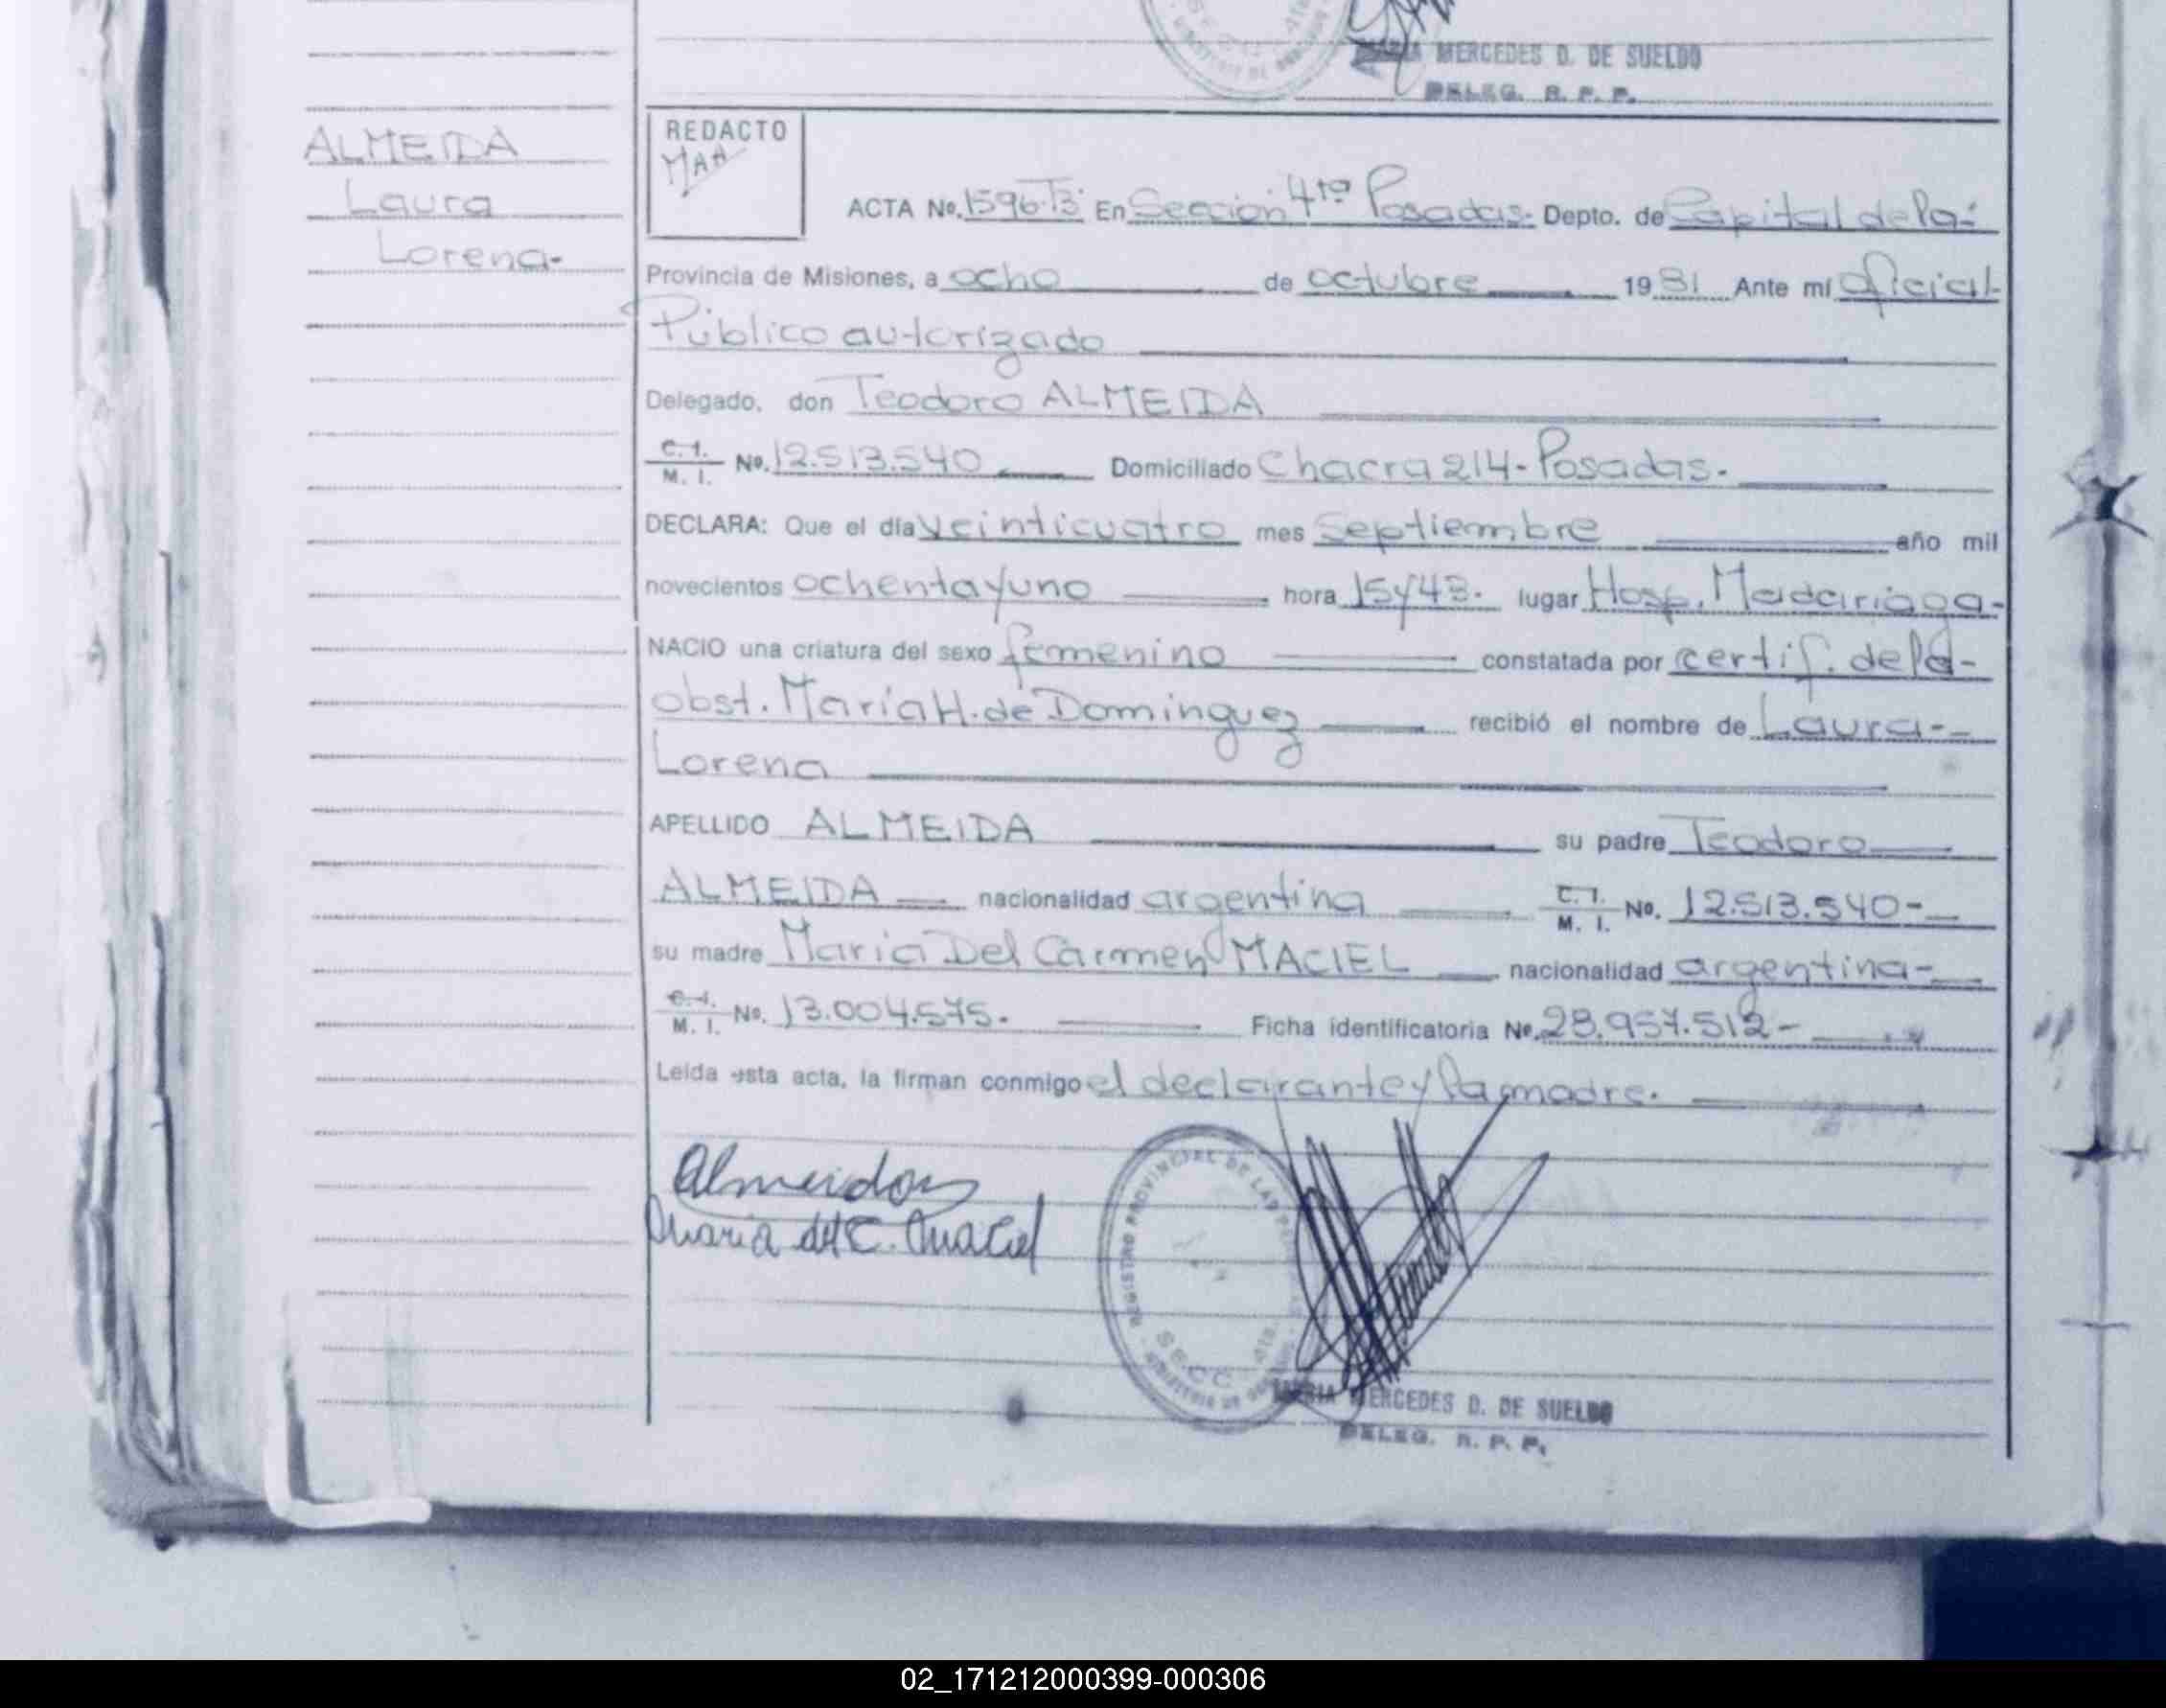 MERCEDES D. DE SUELDO
DELEG. R. P. P.
ALMEIDA
Laura
Lorena-
REDACTO
MAH
ACTA No. 1596-T3 En Sección 4ta Posadas- Depto. de Capital de la-
Provincia de Misiones, a ocho de octubre 19 81 Ante mí Oficial-
Público autorizado
Delegado, don Teodoro ALMEIDA
C. I. M. I. No. 12.513.540 Domiciliado Chacra 214-Posadas.
DECLARA: Que el día veinticuatro mes Septiembre año mil
novecientos ochenta y uno hora 15 y 43. lugar Hosp. Madariaga-
NACIO una criatura del sexo femenino constatada por certif. de la-
obst. María H. de Dominguez recibió el nombre de Laura-
Lorena
APELLIDO ALMEIDA su padre Teodoro
ALMEIDA nacionalidad argentina C. I. M. I. No. 12.513.540-
su madre María Del Carmen MACIEL nacionalidad argentina-
C. I. M. I. No. 13.004.575. Ficha identificatoria No. 28.957.512-
Leída esta acta, la firman conmigo el declarante y la madre.
Almeida
Maria del C. Maciel
REGISTRO PROVINCIAL DE LAS
SECC. 4ta.
MARIA MERCEDES D. DE SUELDO
DELEG. R. P. P.
02_171212000399-000306